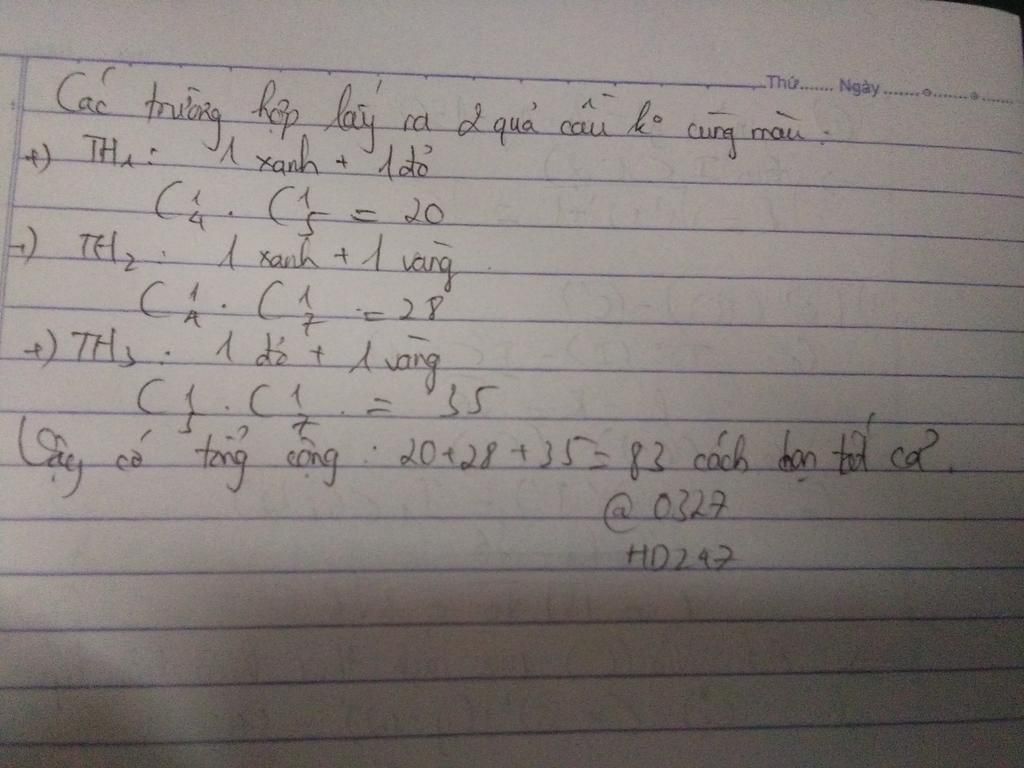 Thứ....... Ngày.......o.........o......
Các trường hợp lấy ra 2 quả cầu ko cùng màu:
+) TH1: 1 xanh + 1 đỏ
C 1 4 . C 1 5 = 20
+) TH2: 1 xanh + 1 vàng
C 1 4 . C 1 7 = 28
+) TH3: 1 đỏ + 1 vàng
C 1 5 . C 1 7 = 35
Vậy có tổng cộng: 20+28+35=83 cách tất cả.
@ 0327
HD247